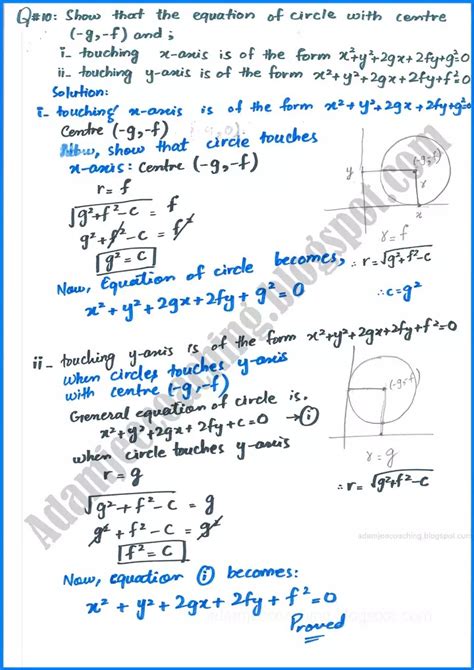 Q#10: Show that the equation of circle with centre
(-g,-f) and ;
i- touching x-axis is of the form x²+y²+2gx+2fy+g²=0
ii- touching y-axis is of the form x²+y²+2gx+2fy+f²=0
Solution:
i- touching x-axis is of the form x²+y²+2gx+2fy+g²=0
Centre (-g,-f)
Now, show that circle touches
x-axis: centre (-g,-f)
r = f
√g²+f²-c = f
g²+f²-c = f²
g² = c
Now, Equation of circle becomes,
x²+y²+2gx+2fy+g²=0
(-g,-f)
y
r
x
r=f
∴ r=√g²+f²-c
∴ c=g²
ii- touching y-axis is of the form x²+y²+2gx+2fy+f²=0
when circles touches y-axis
with centre (-g,-f)
General equation of circle is.
x²+y²+2gx+2fy+c=0 → (i)
when circle touches y-axis
r = g
√g²+f²-c = g
g²+f²-c = g²
f² = c
(-g,-f)
r = g
∴ r=√g²+f²-c
Now, equation (i) becomes:
x²+y²+2gx+2fy+f²=0
Proved
Adamjeecoaching.blogspot.com
adamjeecoaching.blogspot.com
adamjeecoaching.blogspot.com